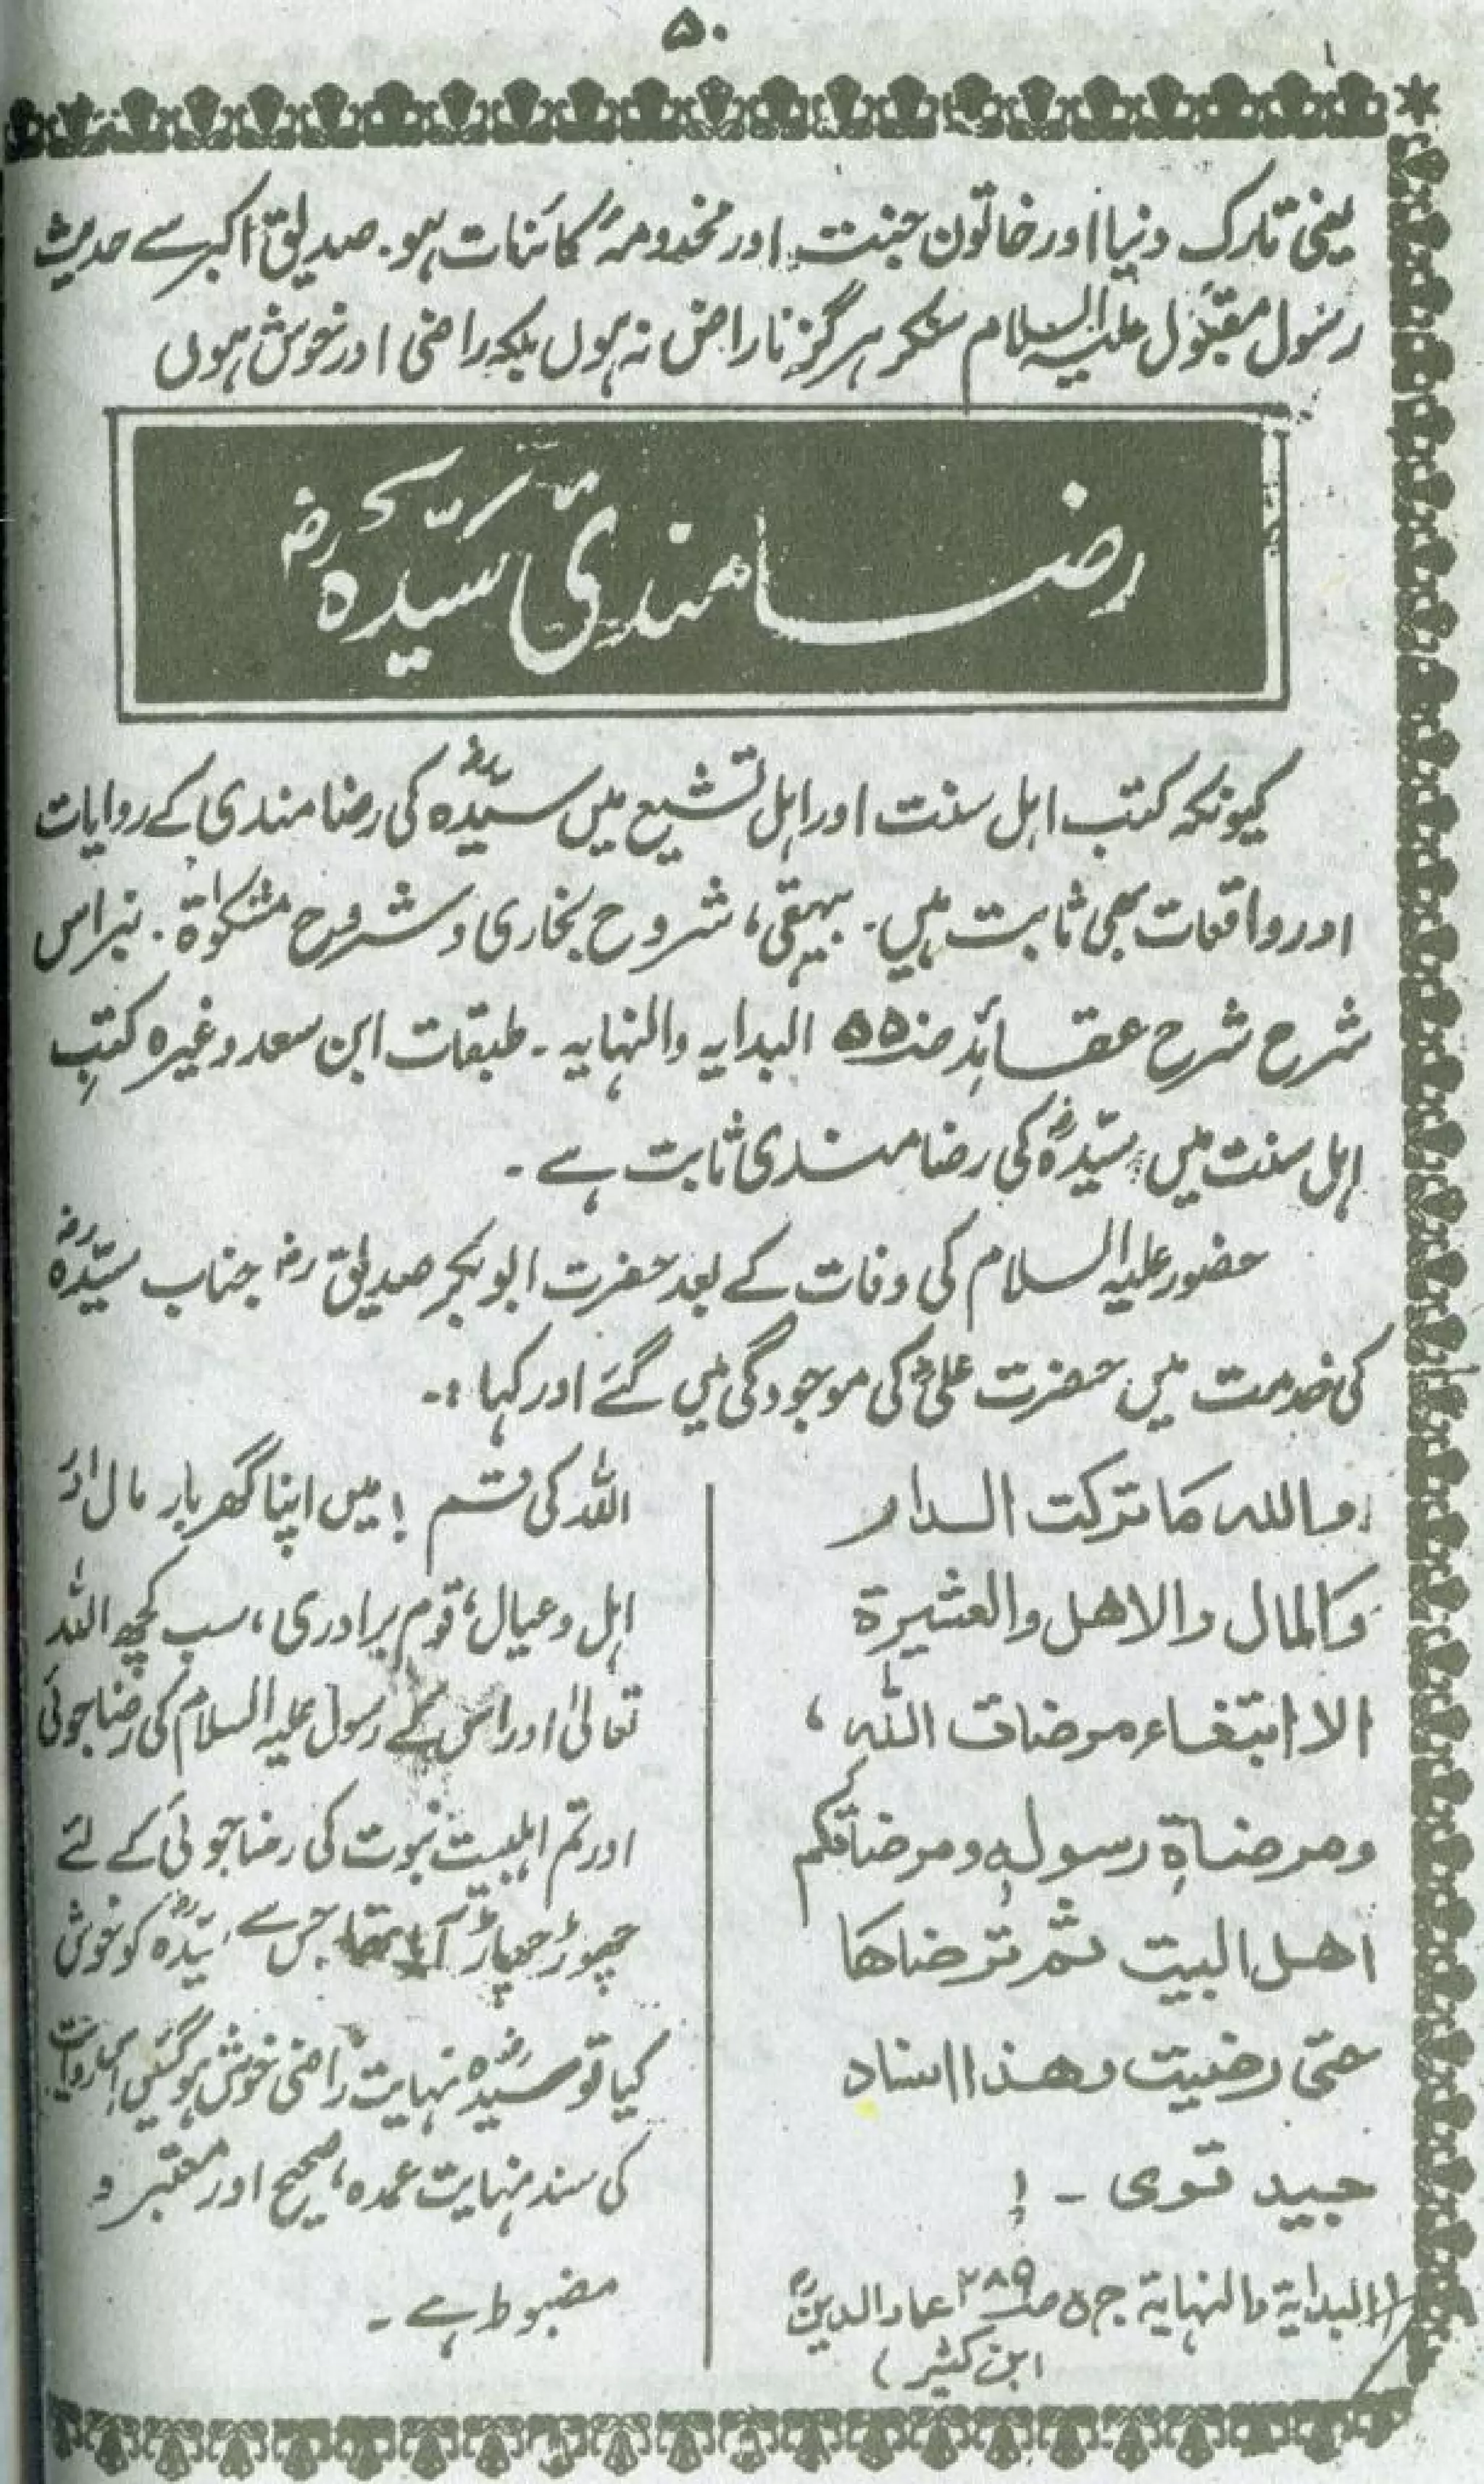 ۵۰
یعنی تارک دنیا اور خاتون جنت اور مخدومۂ کائنات ہو۔ صدیق اکبر سے حدیث
رسول مقبول علیہ السلام سنکر ہرگز ناراض نہ ہوں بلکہ راضی اور خوش ہوں
رضامندیٔ سیّدہ رض
کیونکہ کتب اہل سنت اور اہل تشیع میں سیّدہ رض کی رضامندی کے روایات
اور واقعات بھی ثابت ہیں۔ بیہقی، شروح بخاری و شروح مشکوٰۃ۔ نبراس
شرح شرح عقائد صـ۵۵۰ البدایہ والنہایہ۔ طبقات ابن سعد وغیرہ کتب
اہل سنت میں سیّدہؓ کی رضامندی ثابت ہے۔
حضور علیہ السلام کی وفات کے بعد حضرت ابوبکر صدیق رض جناب سیّدہ رض
کی خدمت میں حضرت علیؓ کی موجودگی میں گئے اور کہا :۔
واللہ ما ترکت الدار
والمال والاھل والعشیرۃ
الا ابتغاء مرضات اللہ،
ومرضاۃ رسولہ ومرضاتکم
اھل البیت ثم ترضاھا
حتی رضیت وھذا اسناد
جید قوی ۔ !
(البدایۃ والنہایۃ ج ۵ صـ۲۸۹ عماد الدینؒ
ابن کثیر)
اللہ کی قسم ! میں اپنا گھر بار مال اور
اہل و عیال، قوم برادری، سب کچھ اللہ
تعالیٰ اور اس کے رسول علیہ السلام کی رضا جوئی
اور تم اہلبیت نبوت کی رضا جوئی کے لئے
چھوڑ چھاڑ آیا تھا جس سے سیّدہ رض کو خوش
کیا تو سیّدہ رض نہایت راضی خوش ہوگئیں اس روایت
کی سند نہایت عمدہ، صحیح اور معتبر و
مضبوط ہے۔